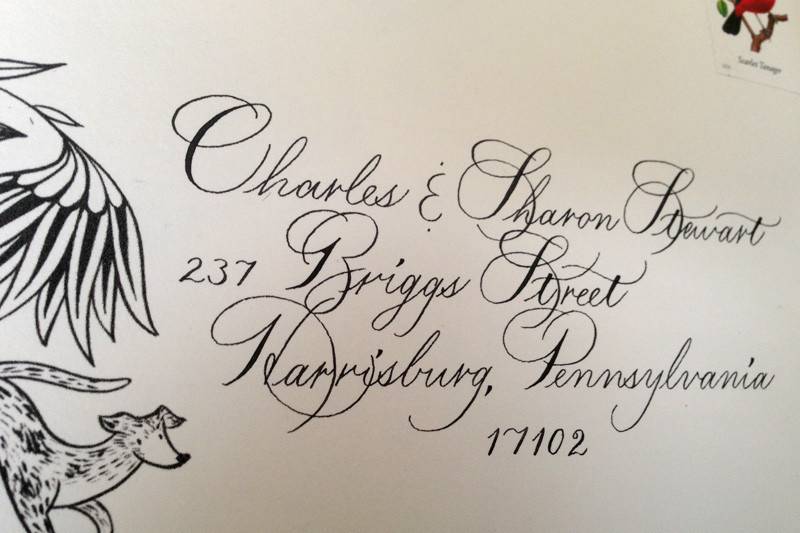 Scarlet Tanager
Charles & Sharon Stewart
237 Briggs Street
Harrisburg, Pennsylvania
17102